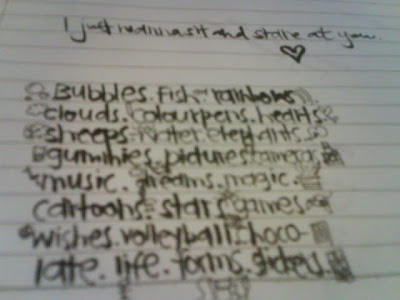 I just wanna sit and stare at you.
Bubbles. Fish. rainbows
clouds. colourpens. hearts
sheeps. water. elephants.
gummies. pictures. cameras
music. dreams. magic.
cartoons. stars. games.
wishes. volleyball. choco-
late. life. forms. stickers.